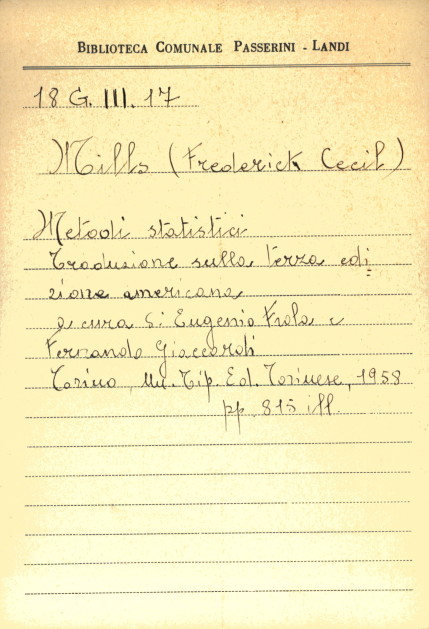 BIBLIOTECA COMUNALE PASSERINI - LANDI
18 G. III. 17
Mills (Frederick Cecil)
Metodi statistici
Traduzione sulla terza edi
zione americana
a cura di Eugenio Frola e
Fernando Giaccardi
Torino, Un. Tip. Ed. Torinese, 1958
pp. 815 ill.